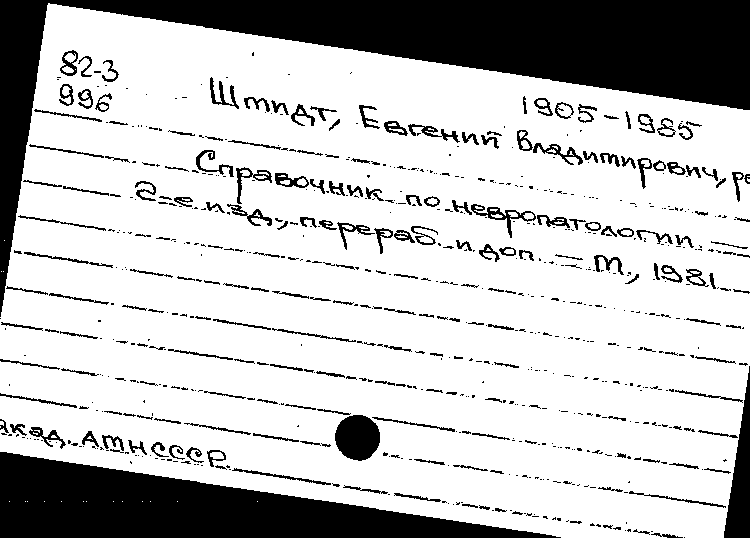 82-3
996
1905-1985
Штидт, Евгений Владитирович, ре
Справочник по невропатологии. —
2-е изд., перераб. и доп. — М., 1981
акад. АМН СССР